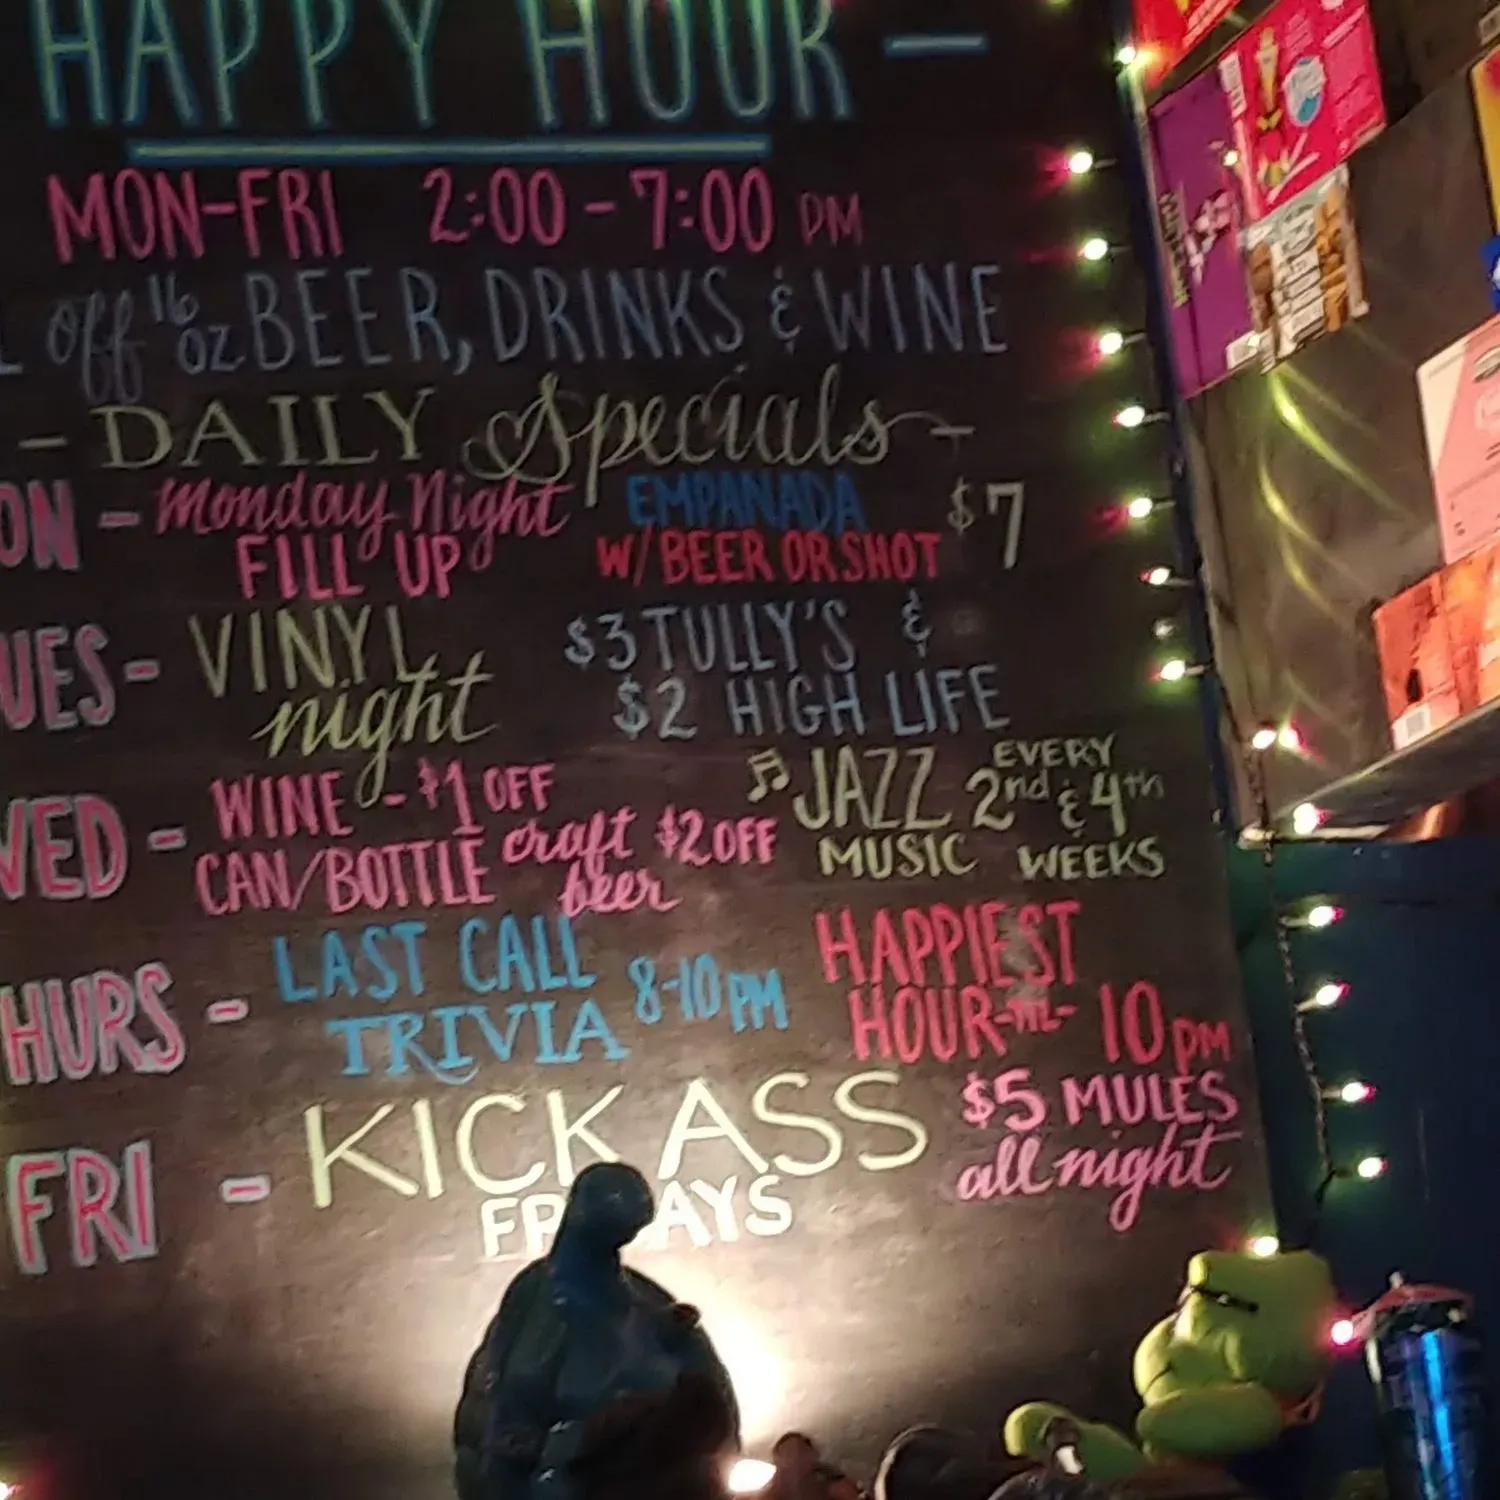 HAPPY HOUR -
MON-FRI 2:00 - 7:00 PM
off 16 oz BEER, DRINKS & WINE
- DAILY Specials -
ON - Monday Night FILL UP EMPANADA W/ BEER OR SHOT $7
UES - VINYL night $3 TULLY'S & $2 HIGH LIFE
WED - WINE - $1 OFF CAN/BOTTLE craft beer $2 OFF JAZZ MUSIC EVERY 2nd & 4th WEEKS
HURS - LAST CALL TRIVIA 8-10 PM HAPPIEST HOUR -TIL- 10 PM
FRI - KICK ASS FR AYS $5 MULES all night